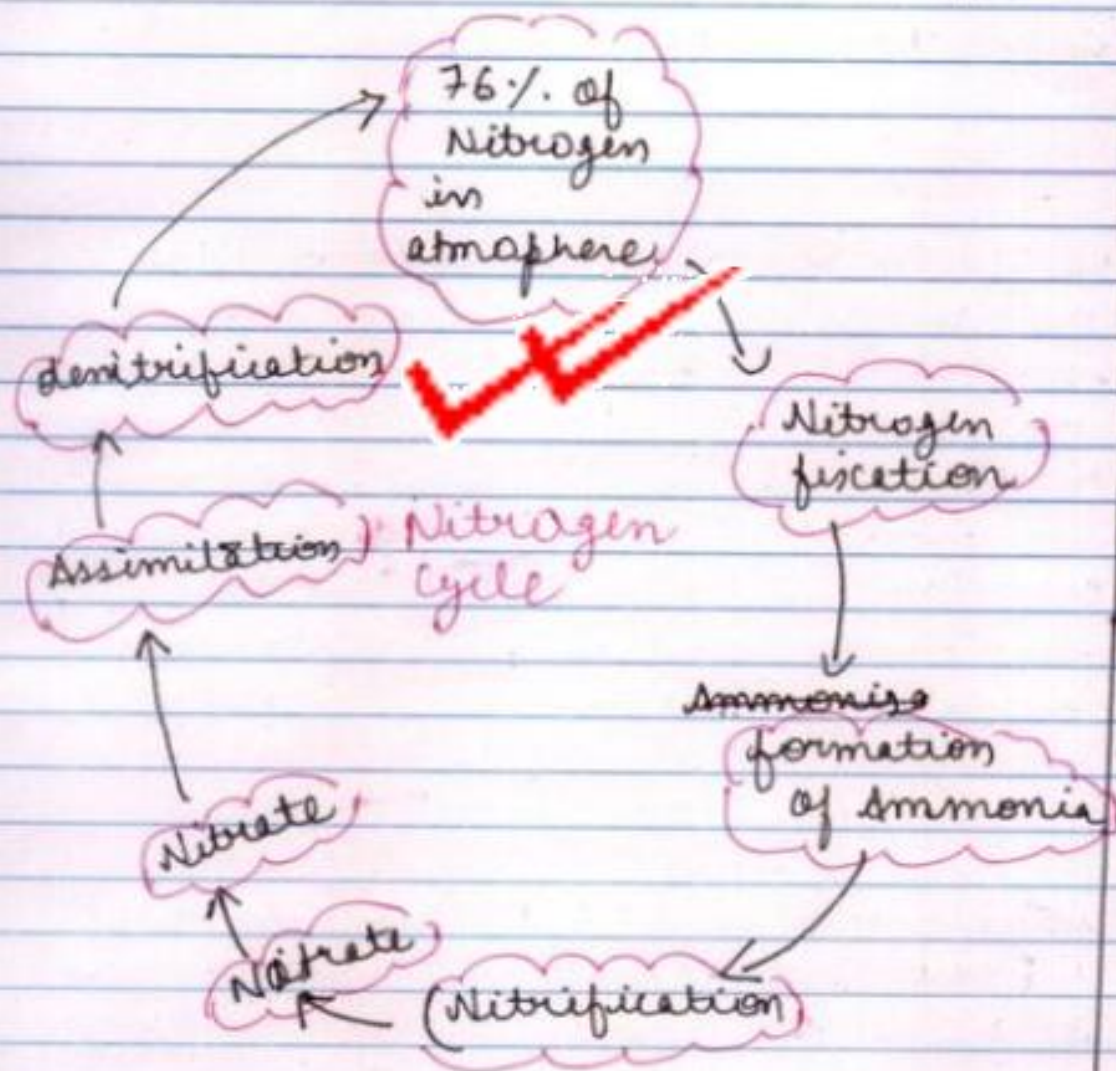 76%. of
Nitrogen
in
atmaphere
Nitrogen
fixcation
Ammonise
formation
of Ammonia
Nitrification
Nitrate
Nitrate
Assimilation
denitrification
Nitrogen
Cycle